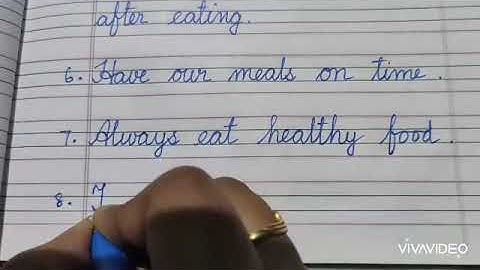 after eating.
6. Have our meals on time.
7. Always eat healthy food.
8.
VIVAVIDEO